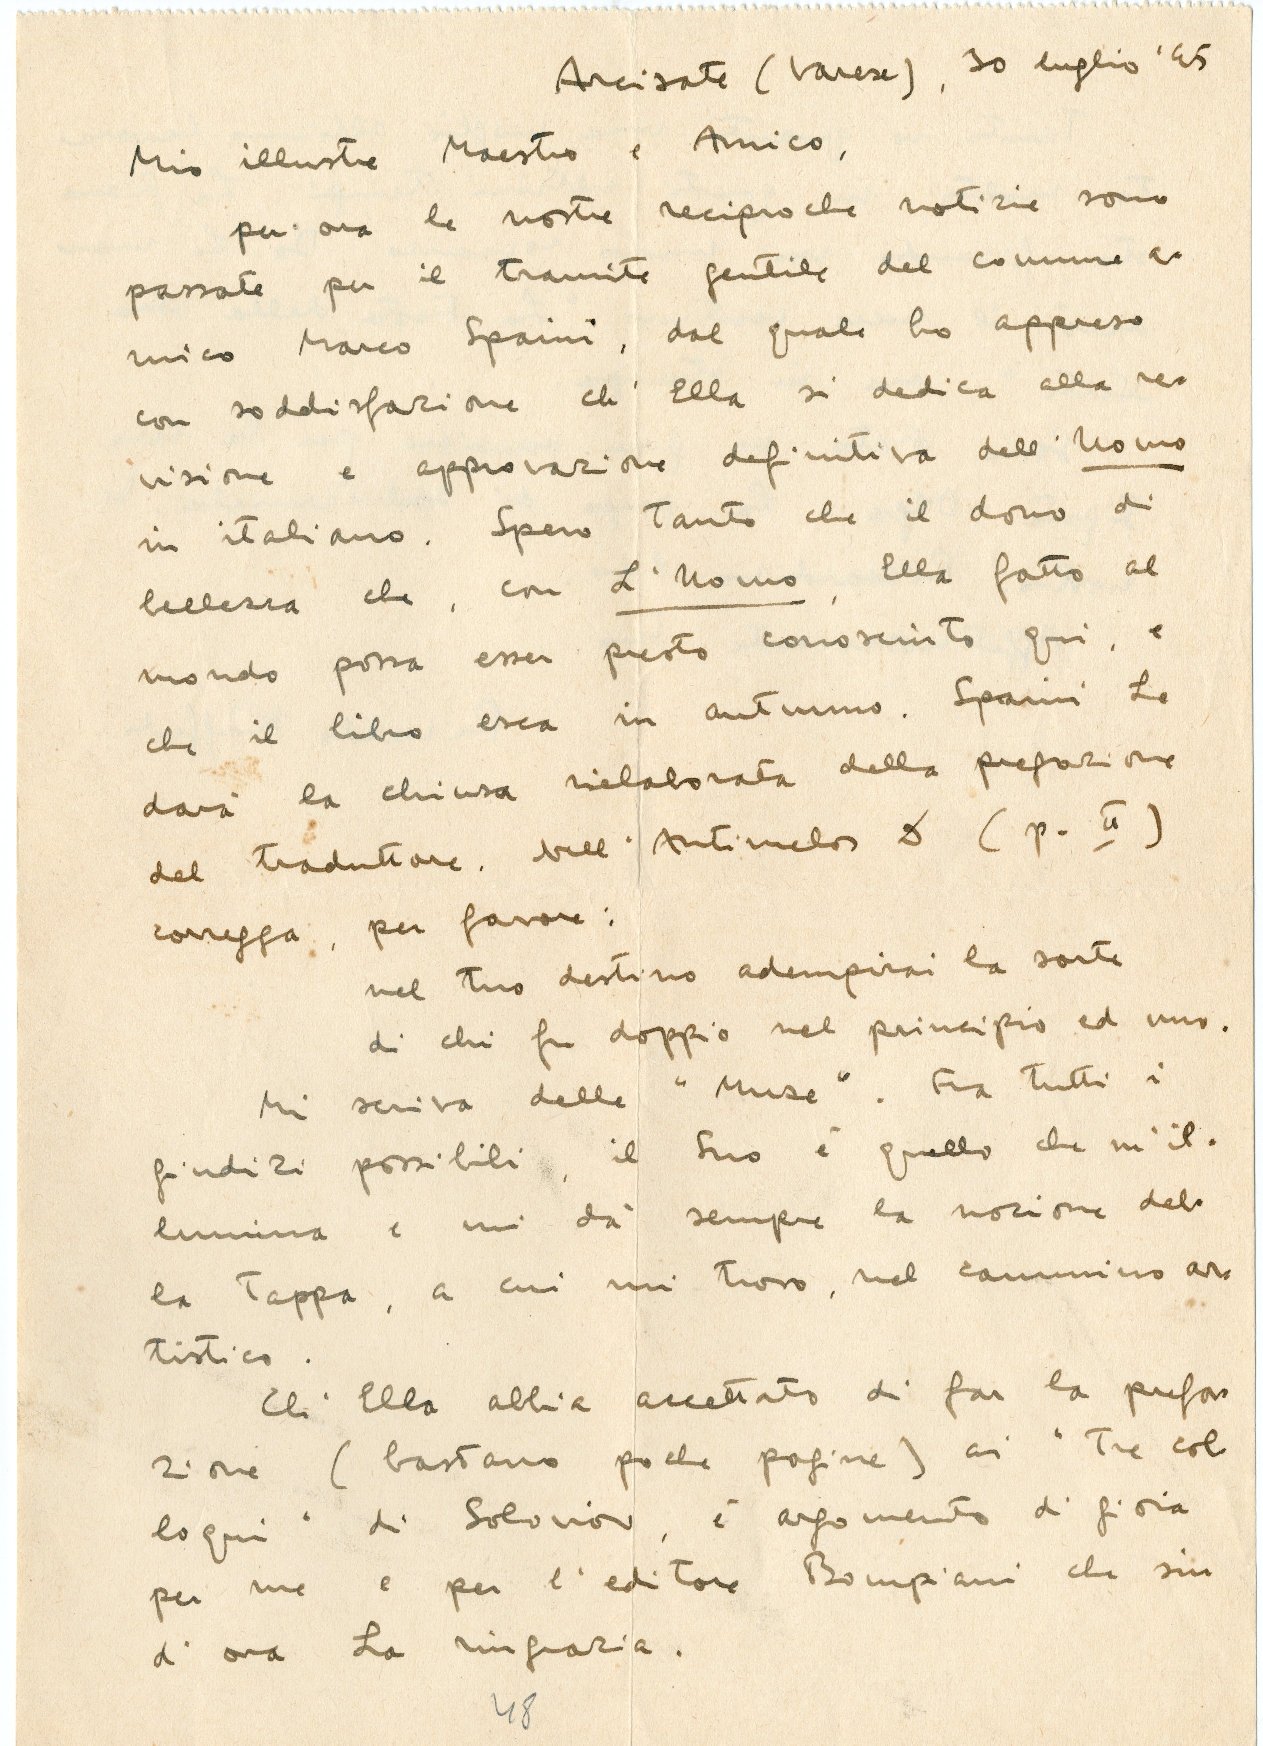 Arcisate (Varese), 30 luglio '45
Mio illustre Maestro e Amico,
per ora le nostre reciproche notizie sono
passate per il tramite gentile del comune a-
mico Marco Spaini, dal quale ho appreso
con soddisfazione ch'Ella si dedica alla re-
visione e approvazione definitiva dell'Uomo
in italiano. Spero tanto che il dono di
bellezza che, con L'Uomo, Ella fatto al
mondo possa esser presto conosciuto qui, e
che il libro esca in autunno. Spaini Le
darà la chiusa rielaborata della prefazione
del traduttore. Nell'Antimelos (p. II)
corregga, per favore:
nel tuo destino adempirai la sorte
di chi fu doppio nel principio ed uno.
Mi scriva delle "Muse". Fra tutti i
giudizi possibili, il Suo è quello che m'il-
lumina e mi dà sempre la nozione del-
la tappa, a cui mi trovo, nel cammino ar-
tistico.
Ch'Ella abbia accettato di far la prefa-
zione (bastano poche pagine) ai "Tre col-
loqui" di Soloviov, è argomento di gioia
per me e per l'editore Bompiani che sin
d'ora La ringrazia.
48